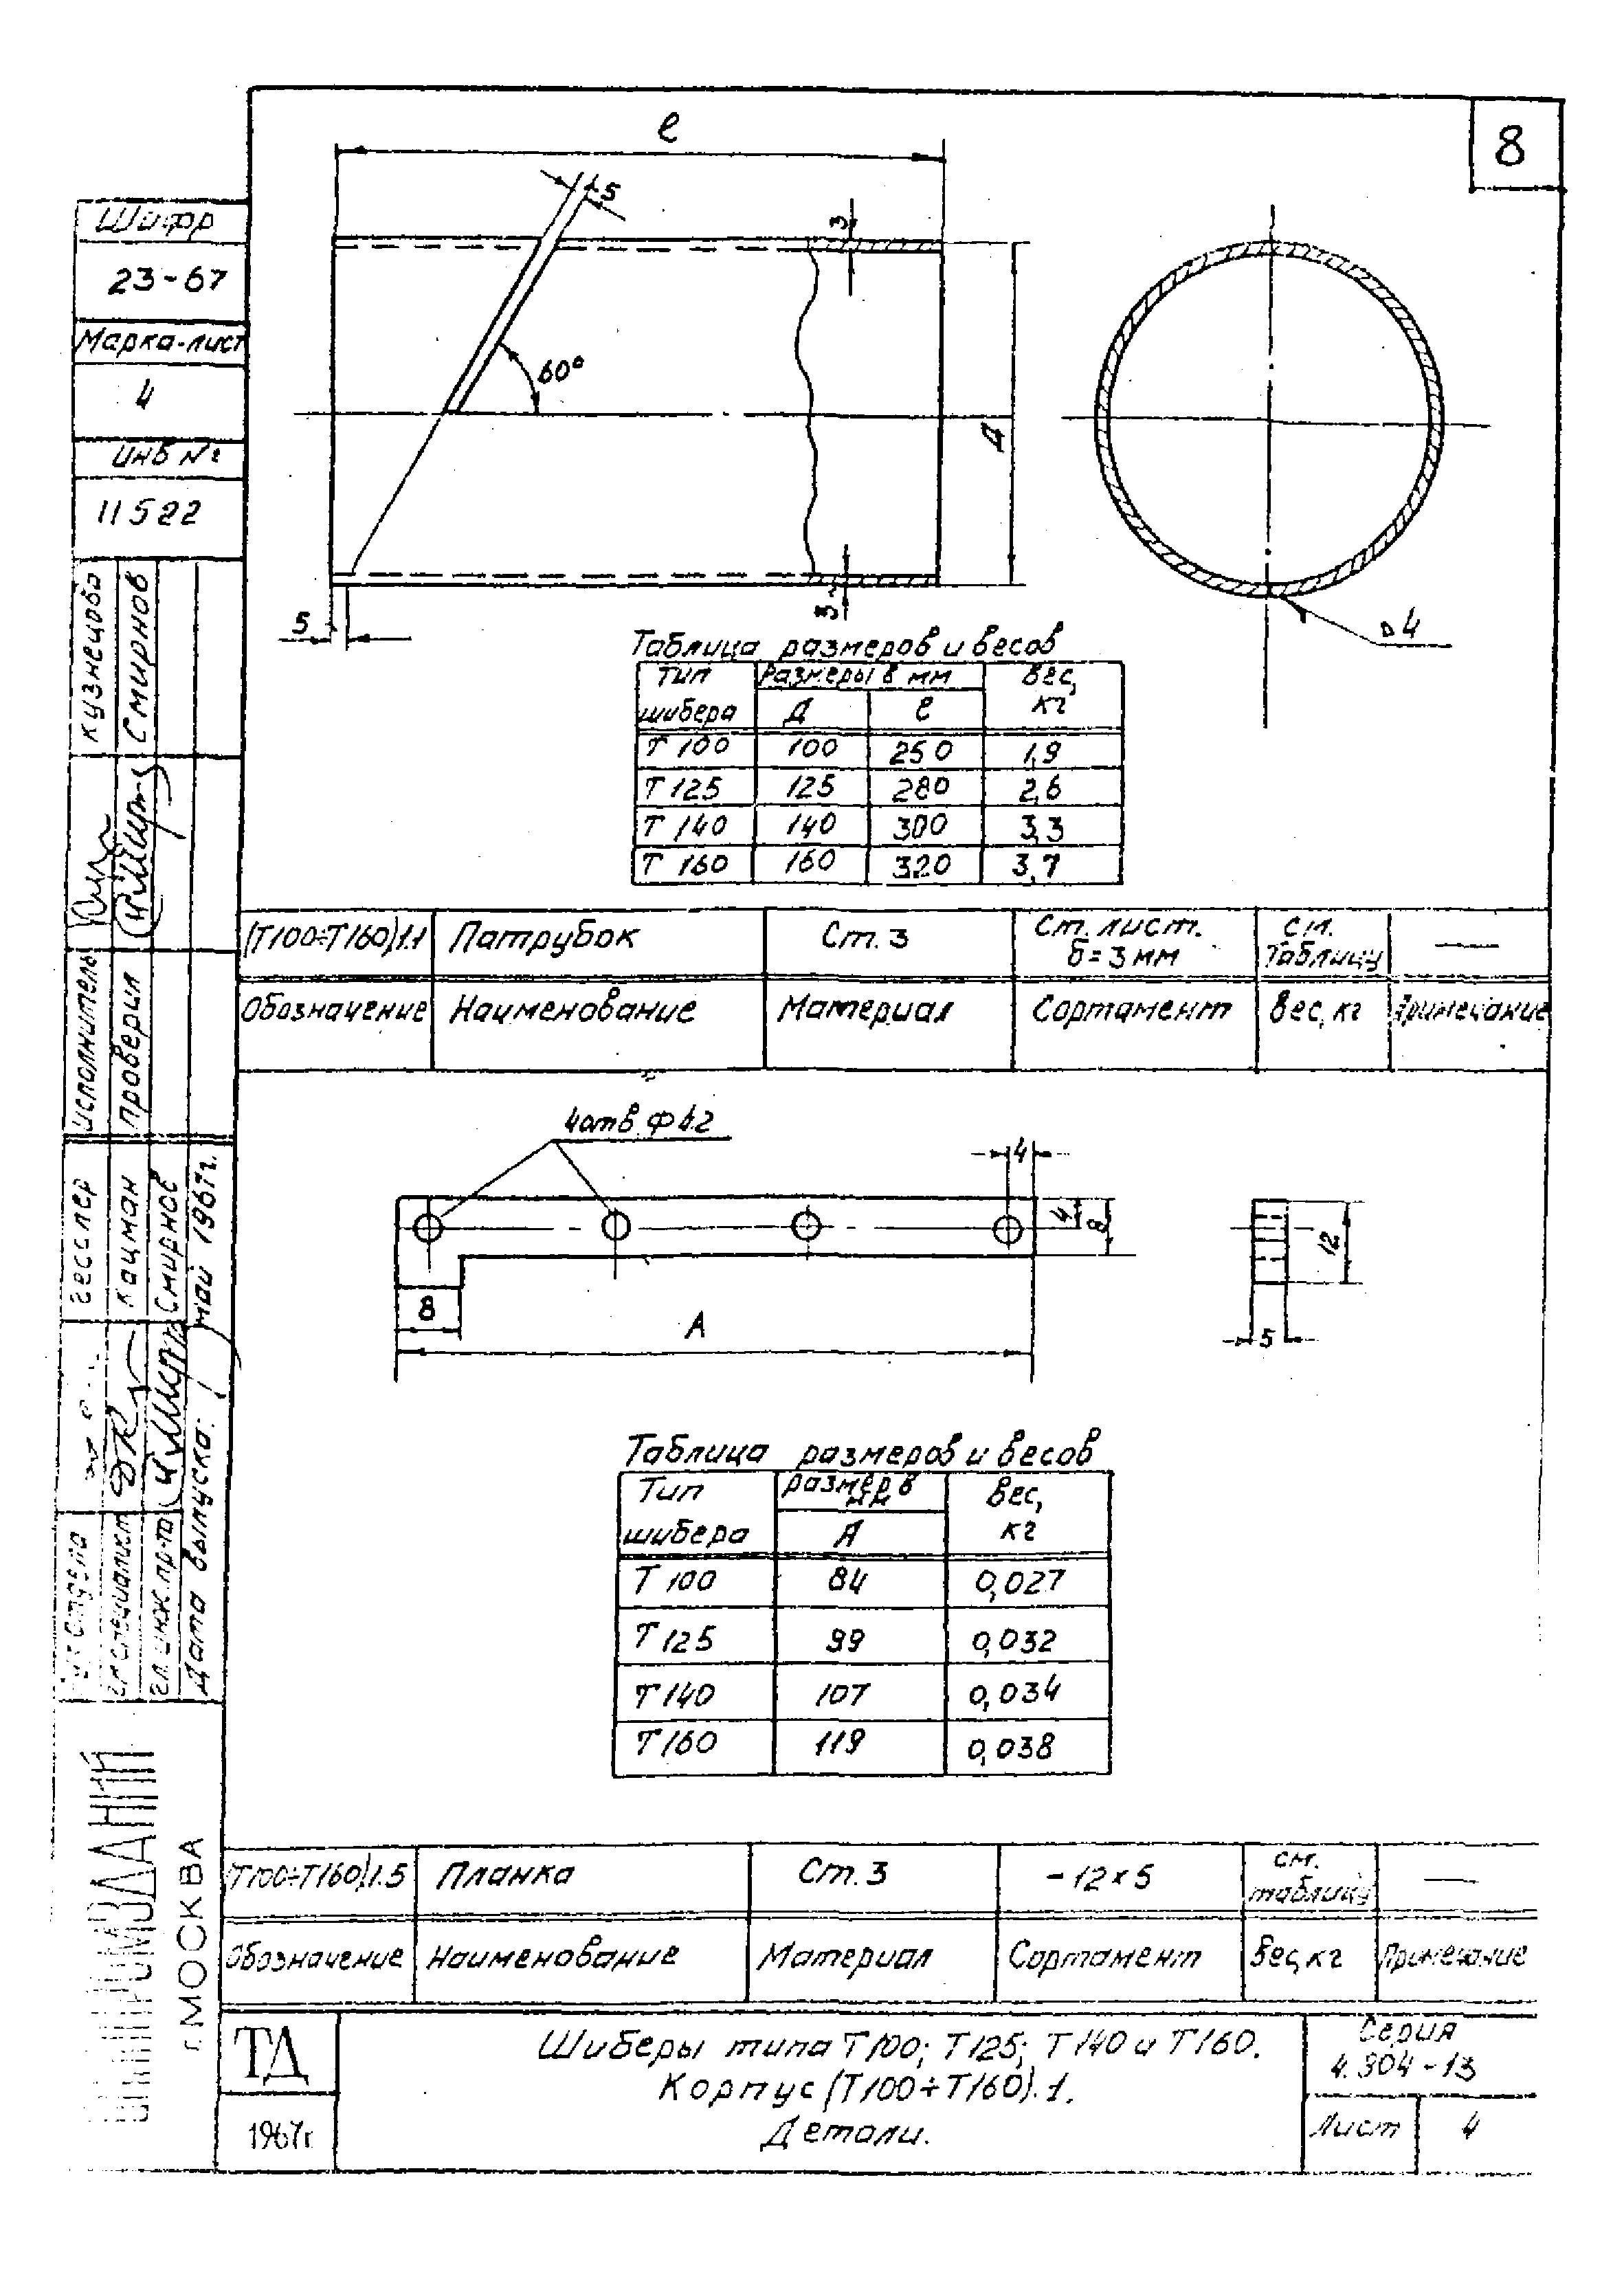 8
Шифр
23-67
Марка-лист
4
Инв №
11522
Кузнецова
Смирнов
исполнитель
проверил
Гесслер
Кацман
Смирнов
май 1967г.
гл. специалист
гл. инж. пр-та
Дата выпуска:
г. МОСКВА
ℓ
1,5
3
60°
Д
3
5
△4
Таблица размеров и весов
Тип шибера | Размеры в мм | Вес, кг
Д | ℓ
Т 100 | 100 | 250 | 1,9
Т 125 | 125 | 280 | 2,6
Т 140 | 140 | 300 | 3,3
Т 160 | 160 | 320 | 3,7
(Т100÷Т160)1.1 | Патрубок | Ст. 3 | Ст. лист. δ=3мм | см. таблицу | —
Обозначение | Наименование | Материал | Сортамент | Вес, кг | Примечание
4 отв. Ф 4.2
4
4
8
12
8
А
5
Таблица размеров и весов
Тип шибера | размер в мм | Вес, кг
А
Т 100 | 84 | 0,027
Т 125 | 99 | 0,032
Т 140 | 107 | 0,034
Т 160 | 119 | 0,038
(Т100÷Т160)1.5 | Планка | Ст. 3 | -12×5 | см. таблицу | —
Обозначение | Наименование | Материал | Сортамент | Вес, кг | Примечание
ТД
1967г.
Шиберы типа Т100; Т125; Т140 и Т160.
Корпус (Т100÷Т160).1.
Детали.
Серия
4.904-13
Лист 4